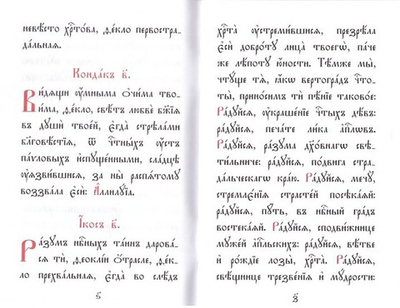 невѣсто хрⷭ҇то́ва, ѳе́кло первострада́льная.
Конда́къ в҃.
Ви́дящи ᲂу҆́мныма ѻ҆чи́ма твои́ма, ѳе́кло, свѣ́тъ любвѐ бж҃їѧ
въ дꙋшѝ твое́й, є҆гда̀ стрѣла́ми
благовѣ́стїѧ, ѿ чтⷭ҇ны́хъ ᲂу҆́стъ
па́vловыхъ и҆спꙋ́щенными, сла́дцѣ
ᲂу҆ѧзви́вшисѧ, за ны̀ распѧ́томꙋ
воззва́ла є҆сѝ: А҆ллилꙋ́їа.
І҆́косъ в҃.
Ра́зꙋмъ нбⷭ҇ныхъ та́инъ дарова́сѧ тѝ, ѳеоклі́и ѻ҆́трасле, ѳе́кло
прехва́льнаѧ, є҆гда̀ во слѣ́дъ
ѕ҃
хрⷭ҇та̀ ᲂу҆стреми́вшисѧ, презрѣ́ла
є҆сѝ добро́тꙋ лица̀ твоегѡ̀, па́че
же лѣ́потꙋ ю҆́ности. Тѣ́мже мы̀,
чтꙋ́ще тѧ̀, ꙗ҆́кѡ вертогра́дъ чтⷭ҇оты̀, прино́симъ тѝ пѣ́нїе таково́е:
Ра́дꙋйсѧ, ᲂу҆краше́нїе чтⷭ҇ыхъ дѣ́въ:
ра́дꙋйсѧ, печа́те ли́ка а҆пⷭ҇лѡвъ.
Ра́дꙋйсѧ, ра́зꙋма дꙋхо́внагѡ свѣти́льниче: ра́дꙋйсѧ, по́двига страда́льческагѡ краю̀. Ра́дꙋйсѧ, мечꙋ̀,
стремле́нїѧ страсте́й посѣка́ѧй:
ра́дꙋйсѧ, пꙋ́ть, въ нбⷭ҇ный гра́дъ
востека́ѧй. Ра́дꙋйсѧ, сподви́жнице
мꙋже́й а҆пⷭ҇льскихъ: ра́дꙋйсѧ, вѣ́тве
и҆ ро́ждїе лозы̀, хрⷭ҇та̀. Ра́дꙋйсѧ,
свѣ́щнице трезве́нїѧ и҆ мꙋ́дрости: